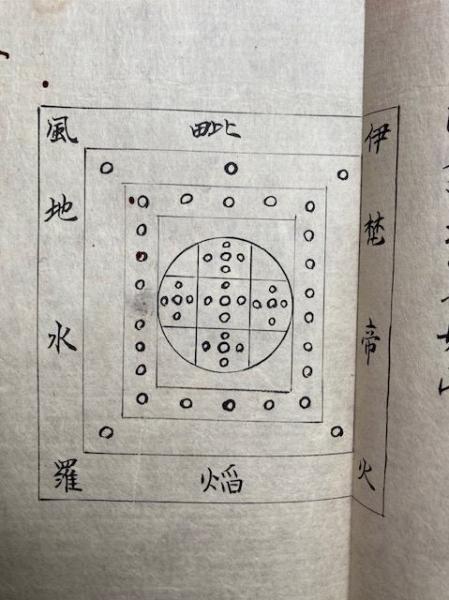 伊
梵
帝
火
毗
焰
風
地
水
羅